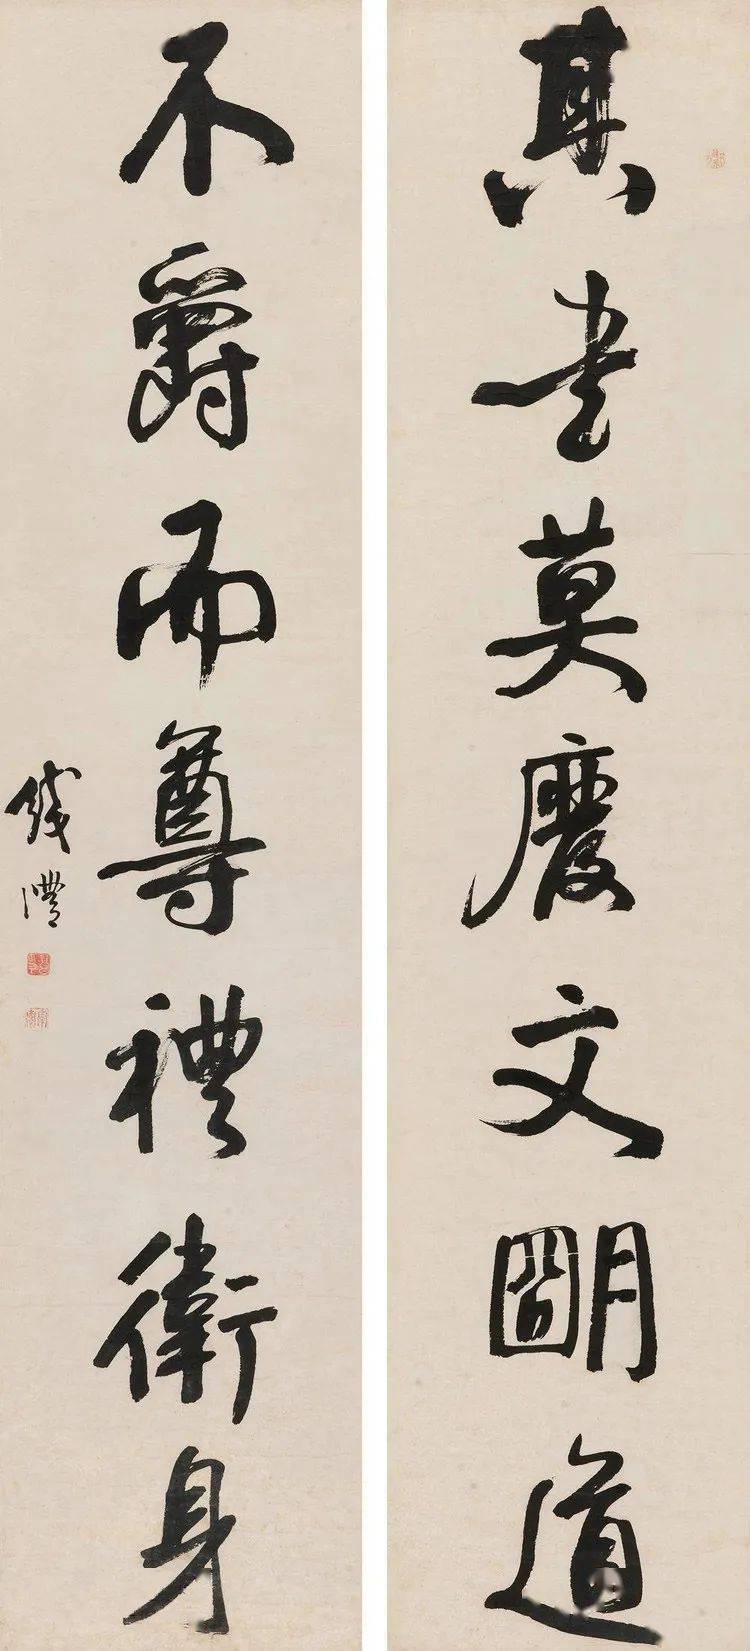 其書莫廢文明道
不爵而尊禮衛身
錢灃